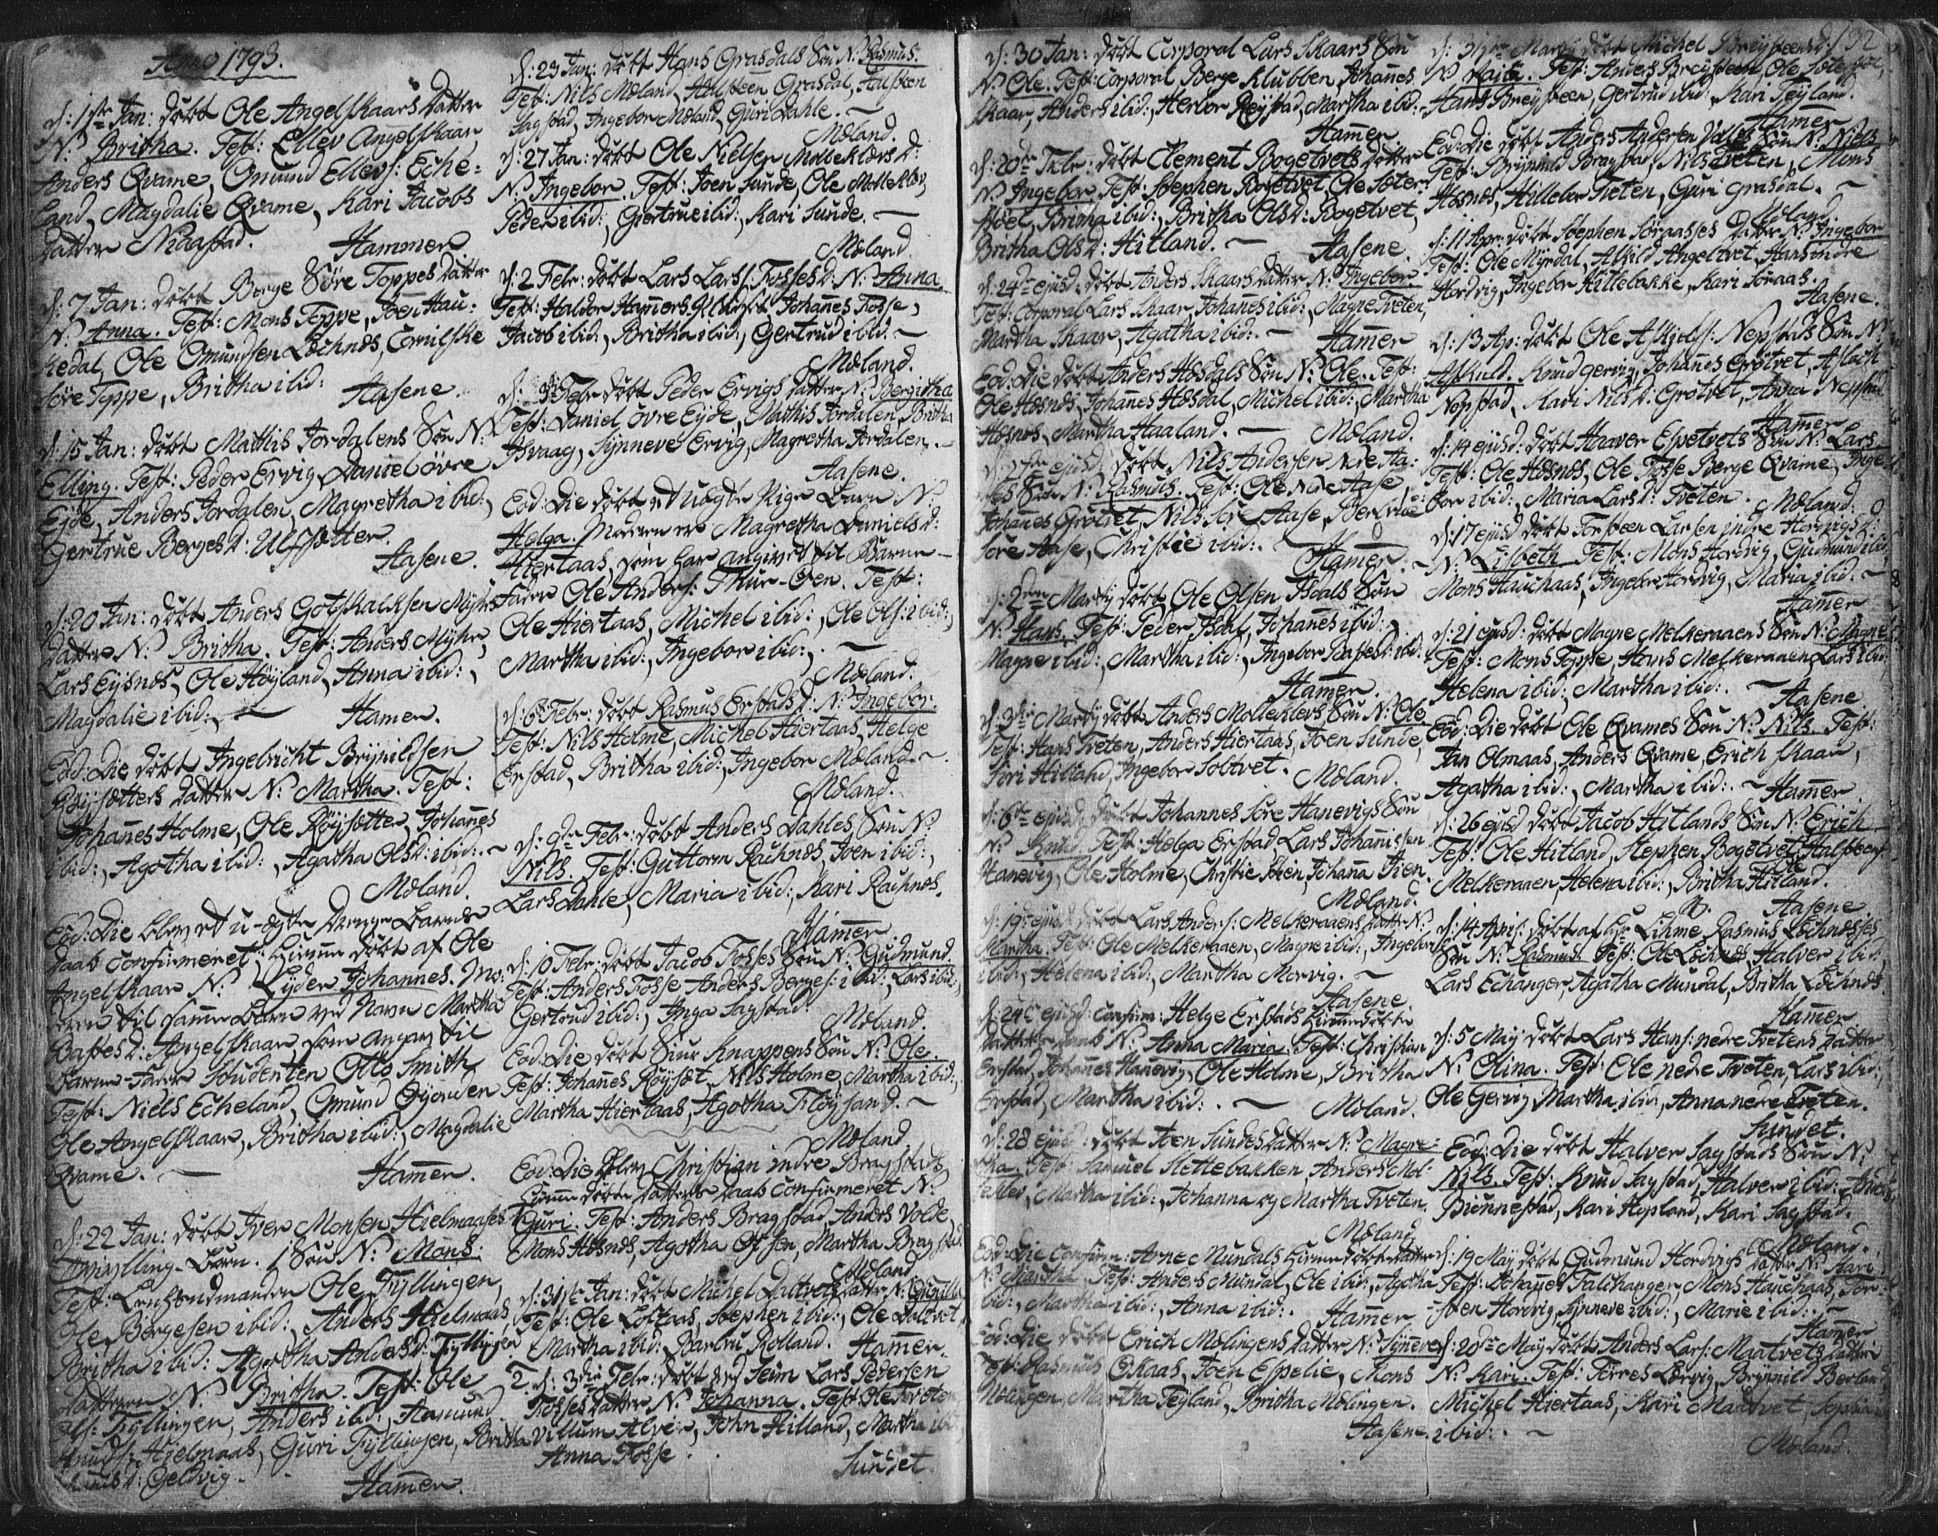 Anno 1793.
d: 1ste Jan: døbt Ole Angelskaars datter
N: Britha. Test: Ellev Angelskaar
Anders Qvame, Omund Ellevs: Eche-
land, Magdalie Qvame, Kari Jacobs
datter Niaastad. Hammer
d: 7 Jan: døbt Berge Søre Toppes datter
N: Anna. Test: Mons Toppe, Joen Hau-
kedal, Ole Omundsen Løchnes,
Søre Toppe, Britha ibid: Aasene.
d: 15 Jan: døbt Mathis Jordalens Søn N:
Elling. Test: Peder Ervig, Daniel øvre
Eyde, Anders Jordalen, Magretha ibid:,
Gertrue Berges d: Ulfssetter.
Aasene.
d: 20 Jan: døbt Anders Gotskalksen Myhrs
datter N: Britha. Test: Anders Myhr,
Lars Eysnes, Ole Høyland, Anna ibid:,
Magdalie ibid: Hamer.
Eod: Die døbt Ingebricht Brynildsen
Røysetters datter N: Martha. Test:
Johannes Holme, Ole Røysetter, Johannes
ibid:, Agotha ibid:, Agatha Olsd: ibid:
Mæland.
Eod: Die blev et u-ægte Drenge Barns
daab confirmeret hiemme døbt af Ole
Angelskaar N: Lyder Johannes. Mo-
eren til samme Barn ved Navn Martha
Basses d: Angelskaar som angav til
Barne-Farer Studenten Otto Smith
Test: Niels Echeland, Omund
Ole Angelskaar, Britha ibid:, Magdalie
Qvame. Hamer.
d: 22 Jan: døbt Iver Monsen Hielmaases
Twylling-Børn. 1 Søn N: Mons.
Test: Lensmanden Ole Fyllingen,
Ole Børgesen ibid:, Anders Hielmaas,
Britha ibid: Agotha Anders d: Fyllingen
datteren N: Britha. Test: Ole
Ols: Fyllingen, Anders ibid:, Aamund
Knuds: Hielmaas, Guri Fyllingen, Britha
Knuds d: Gelvig.
Hamer.
d: 23 Jan: døbt Hans Grasdals Søn N: Rasmus.
Test: Nils Mæland, Halsteen Grasdal, Halsteen
Sagstad, Ingebor Mæland, Guri Dahle.
Mæland.
d: 27 Jan: døbt Ole Nielsen Molleklevs d:
N: Ingebor. Test: Joen Sunde, Ole Molleklev,
Peder ibid:, Giertrue ibid:, Kari Sunde.
Mæland.
d: 2 Febr: døbt Lars Larss: Fosses d: N: Anna.
Test: Haldor Hamers Johannes Fosse,
Jacob ibid:, Britha ibid:, Gertrud ibid:
Mæland.
d: 3die Febr døbt Peder Ervigs datter N: Bergitha
Test: Daniel øvre Eyde, Mathis Jordalen, Britha
Hvaag, Synneve Ervig, Magretha Jordalen.
Aasene.
Eod: Die døbt et uægte Pige Barn N:
Helga. Moeren er Magretha Daniels d:
Hiertaas, som har angivet til Barne-
Farer Ole Anders: Thur-Øen. Test:
Ole Hiertaas, Michel ibid:, Ole Ols: ibid:,
Martha ibid:, Ingebor ibid:,
Mæland.
d: 6 Febr: døbt Rasmus Erstads d: N: Ingebor.
Test: Nils Holme, Michel Hiertaas, Helge
Erstad, Britha ibid:, Ingebor Mæland.
Mæland.
d: 9de Febr: døbt Anders Dahles Søn N:
Nils. Test: Guttorm Rachnes, Joen ibid:,
Lars Dahle, Maria ibid:, Kari Rachnes.
Hamer.
d: 10 Febr: døbt Jacob Fosses Søn N: Gudmund.
Test: Anders Fosse Anders Berges: ibid:, Lars ibid:,
Gertrud ibid:, Inga Sagstad.
Mæland.
Eod: Die døbt Siur Knappens Søn N: Ole.
Test: Johannes Røyset, Nils Holme, Martha ibid:,
Martha Hiertaas, Agotha Fløysand.
Mæland.
Eod: Die blev Christian indre Bragstads
hiemme døbte datters daab confirmeret N:
Guri. Test: Anders Bragstad, Anders Volle,
Mons Hosnes, Agotha Otsen, Martha Bragstad
Mæland
d: 31te Jan: døbt Michel Daltvets datter N:
Test: Ole Loktaas, Stephen ibid:, Ole Daltvet,
Martha ibid: Barbru Rolland. Hamer.
2. d: 3die Febr: døbt ved Seim Lars Pedersen
Fosses datter N: Johanna. Test: Ole Tveten
Villum Alver, John Hilland, Martha ibid:
Anna Fosse.
Sundet.
d: 30 Jan: døbt Corporal Lars Skaars Søn
N: Ole. Test: Corporal Berge Klubben, Johannes
Skaar, Anders ibid:, Herlor Reystad, Martha ibid:
Hamer
d: 20de Febr: døbt Clement Bogetvets datter
N: Ingebor. Test: Stephen Bogetvet, Ole Seter-
støel, Britha ibid:, Britha Olsd: Bogetvet,
Britha Olsd: Hitland. Aasene.
d: 24de ejusd: døbt Anders Skaars datter N: Ingebor.
Test: Corporal Lars Skaar, Johannes ibid:, Magne Tveten,
Martha Skaar, Agatha ibid: Hamer
Eod: Die døbt Anders Hosdals Søn N: Ole. Test:
Ole Hosnes, Johanes Hosdal, Michel ibid:, Martha
Hosnes, Martha Haaland. Mæland.
ejusd: døbt Nils Andersen Nere Aa-
ses Søn N: Rasmus. Test: Ole Nere Aase
Johannes Grotvet, Nils Søre Aase, Bertrue
Søre Aase, Christie ibid:
Hamer.
d: 2den Martij døbt Ole Olsen Isdals Søn
N: Hans. Test: Peder Isdal, Johannes ibid:
Magne ibid:, Martha ibid:, Ingebor Basses d: ibid:
Hamer.
d: 3die Martij døbt Anders Molleklevs Søn N: Ole
Test: Hans Tveten, Anders Hiertaas, Joen Sunde,
Jori Hilland, Ingebor Soltvet. Mæland.
d: 6te ejusd: døbt Johannes Søre Hanevigs Søn
N: Knud. Test: Helga Erstad Lars Johannissen
Hanevig, Ole Holme, Christie Stien, Johanna Stien.
Mæland.
d: 19de ejusd: døbt Lars Anders: Melkeraaens datter N:
Martha. Test: Ole Melkeraaen, Magne ibid:, Ingebor
ibid:, Helena ibid:, Martha Morvig.
Aasene.
d: 24de ejusd: confirm: Helge Erstads hiemmedøbte
datters daab N: Anna Maria. Test: Christian
Erstad, Johannes Hanevig, Ole Holme, Britha
Erstad, Martha ibid: Mæland.
d: 28 ejusd: døbt Joen Sundes datter N: Magre-
tha. Test: Samuel Slettebakken, Anders Mol-
leklev, Martha ibid:, Johanna og Martha Tveten.
Mæland
Eod: Die confirm: Arne Mundals hiemmedøbte datter
N: Martha. Test: Anders Mundal, Ole ibid:, Agotha
ibid:, Martha ibid:, Anna ibid: Hamer
Eod: Die døbt Erich Molingens datter N: Synneve
Test: Rasmus Skaas, Joen Espelie, Mons
Molingen, Martha Fejland, Britha Molingen.
Aasene.
132
d: 31te Martij døbt Michel Breysteens d:
N: Raita. Test: Anders Breysteen, Ole Setestøel,
Hans Breysteen, Gertrud ibid:, Kari Feyland.
Hamer
Eod: Die døbt Anders Andersen Volles Søn N: Niels
Test: Brynnild Bragstad, Nils Tveten, Mons
Hosnes, Hilleleu Tveten, Guri Grasdal.
Mæland.
d: 11 Apr: døbt Stephen Soraases datter N: Ingebor
Test: Ole Myrdal, Askild Angeltvet, Hans indre
Hordvig, Ingebor Hillebakke, Kari Soraas.
Aasene.
d: 13 Ap: døbt Ole Askjels: Nepstads Søn N:
Askuld. Knud Gervig, Johannes Grotvet, Aslach
Nepstad, Kari Nilsd: Grotvet, Anna Nepstad
Hamer
d: 14 ejusd: døbt Haaver Espetvets Søn N: Lars
Test: Ole Hosnes, Ole Fosse Berge Qvame, Inge-
bor ibid:, Maria Lars d: Tveten. Mæland.
d: 17 ejusd døbt Torsteen Larsen indre Hordvigs d:
N: Lisbeth Test: Mons Hordvig, Gudmund ibid:
Mons Hauchaas, Ingebor Hordvig, Maria ibid:
Hamer
d: 21 ejusd: døbt Magne Melkeraaens Søn N: Magne
Test: Mons Toppe, Hans Melkeraaen Lars ibid:
Helena ibid:, Martha ibid: Aasene
Eod: Die døbt Ole Qvames Søn N: Nils. Test:
Jan Olmaas, Anders Qvame, Erich Skaar,
Agatha ibid:, Martha ibid: Hamer
d: 26 ejusd døbt Jacob Hitlands Søn N: Erich
Test: Ole Hitland, Stephen Bogetvet, Halsteen
Melkeraaen, Helena ibid:, Britha Hitland.
Aasene
d: 14 April: døbt af Hr Lihme Rasmus Løchnesses
Søn N: Rasmus Test: Ole Løchnes, Halver ibid:
Lars Echanger, Agatha Mundal, Britha Løchnes.
Hamer
d: 5 May døbt Lars Hans: nedre Tvetens datter
N: Olina. Test: Ole nedre Tveten, Lars ibid:,
Ole Gervig Martha ibid, Anna nedre Tveten.
Sundet.
Eod: Die døbt Halver Sagstads Søn N:
Nils. Test: Knud Sagstad, Halver ibid:
Biønnestad, Kari Hopland, Kari Sagstad.
Mæland.
d: 19 May døbt Gudmund Hordvigs datter N: Kari
Test: Johannes Salthanger, Mons Hauchaas, Tor-
steen Hordvig, Synneve ibid:, Marie ibid:
Hamer
d: 20de May døbt Anders Lars: Maatvets datter
N: Kari. Test: Torres Lervig, Brynnild Berland
Michel Hiertaas, Kari Maatvet, Sophia
ibid:
Mæland.